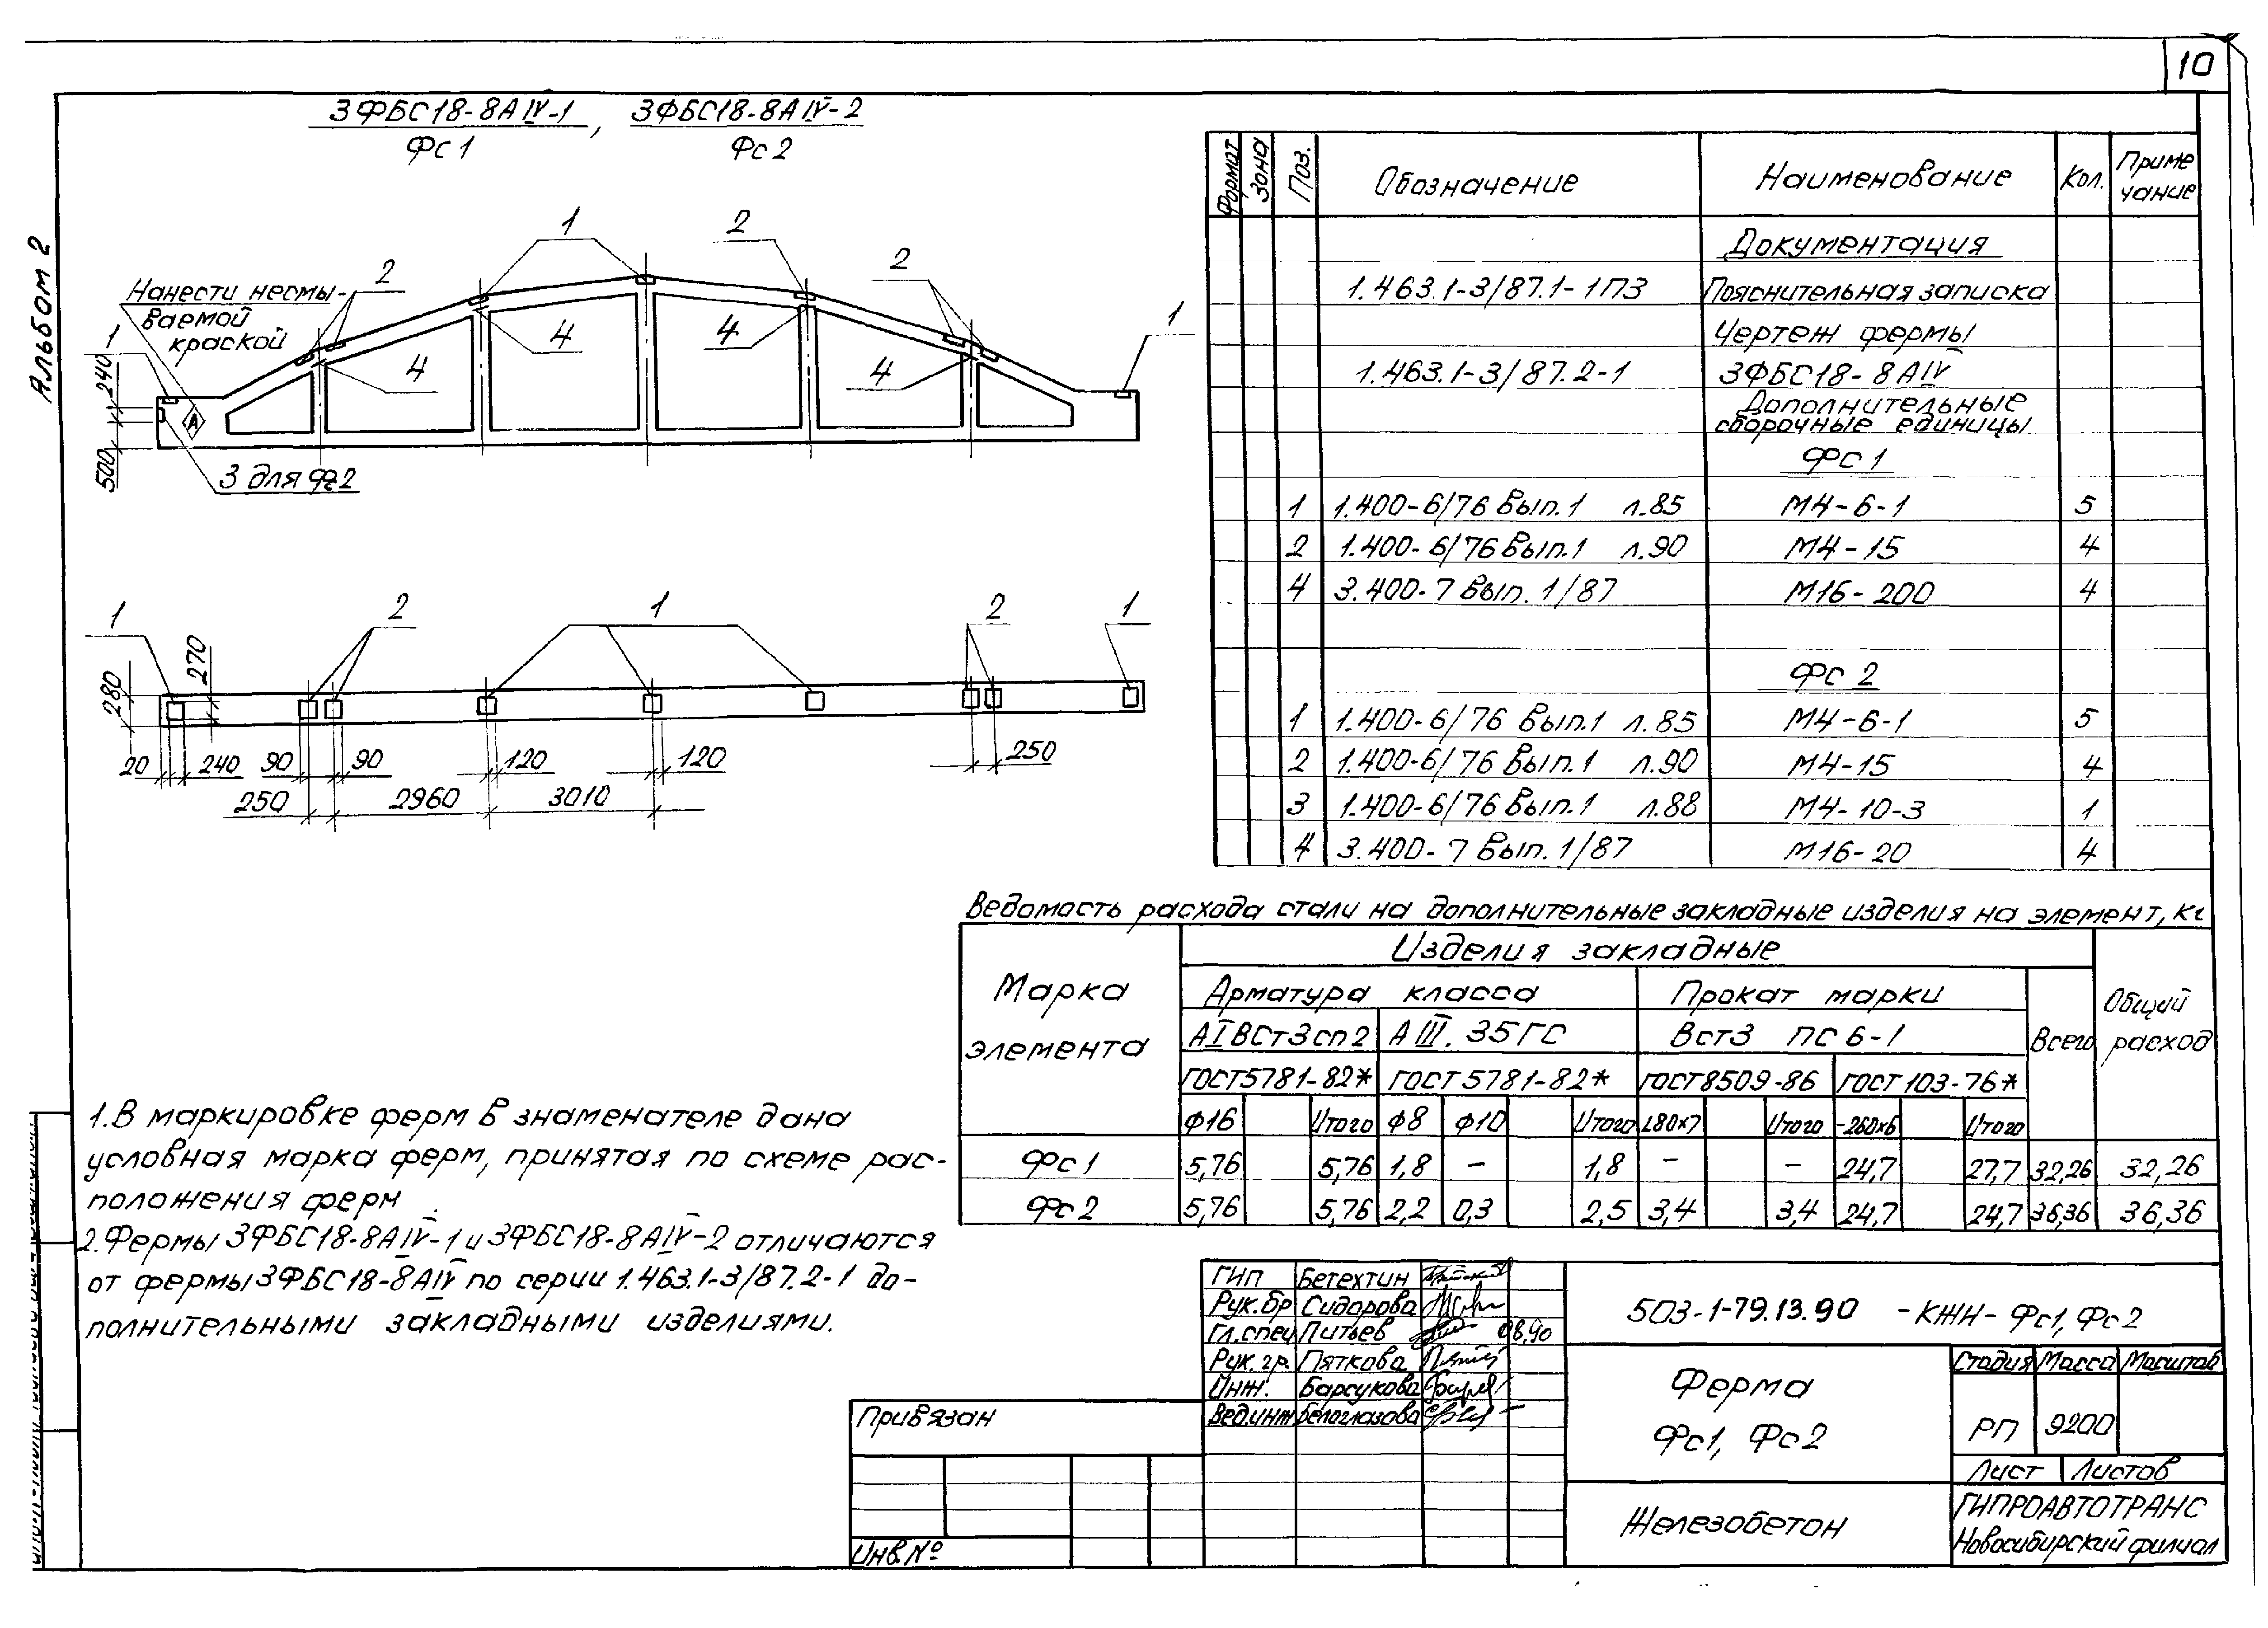 10
Альбом 2
3ФБС18-8АIV-1, 3ФБС18-8АIV-2
Фс1 Фс2
1 2 2
Нанести несмы-
ваемой
краской
2 1
1 4 4 4 4
240
500
А
3 для Фс2
1 2 1 2 1
280 270
20 240 90 90 120 120 250
250 2960 3010
Формат Зона Поз. Обозначение Наименование Кол. Приме
чание
Документация
1.463.1-3/87.1-1ПЗ Пояснительная записка
Чертеж фермы
1.463.1-3/87.2-1 3ФБС18-8АIV
Дополнительные
сборочные единицы
Фс1
1 1.400-6/76 Вып.1 л.85 М4-6-1 5
2 1.400-6/76 Вып.1 л.90 М4-15 4
4 3.400-7 Вып.1/87 М16-200 4
Фс2
1 1.400-6/76 Вып.1 л.85 М4-6-1 5
2 1.400-6/76 Вып.1 л.90 М4-15 4
3 1.400-6/76 Вып.1 л.88 М4-10-3 1
4 3.400-7 Вып.1/87 М16-20 4
Ведомость расхода стали на дополнительные закладные изделия на элемент, кг
Марка
элемента
Изделия закладные
Общий
расход
Арматура класса Прокат марки Всего
АIВСт3сп2 АIII. 35ГС Вст3 ПС6-1
ГОСТ5781-82* ГОСТ5781-82* ГОСТ8509-86 ГОСТ103-76*
Ф16 Итого Ф8 Ф10 Итого L80х7 Итого -260х6 Итого
Фс1 5,76 5,76 1,8 - 1,8 - - 24,7 27,7 32,26 32,26
Фс2 5,76 5,76 2,2 0,3 2,5 3,4 3,4 24,7 24,7 36,36 36,36
1.В маркировке ферм в знаменателе дана
условная марка ферм, принятая по схеме рас-
положения ферм.
2.Фермы 3ФБС18-8АIV-1 и 3ФБС18-8АIV-2 отличаются
от фермы 3ФБС18-8АIV по серии 1.463.1-3/87.2-1 до-
полнительными закладными изделиями.
ГИП Бетехтин
Рук.бр Сидорова
Гл.спец Питьев 08,90
Рук.гр. Пяткова
Инж. Барсукова
Вед.инж Белоглазова
503-1-79.13.90 -КЖН-Фс1,Фс2
Ферма
Фс1, Фс2
Стадия Масса Масштаб
РП 9200
Лист Листов
Железобетон
ГИПРОАВТОТРАНС
Новосибирский филиал
Привязан
Инв.№